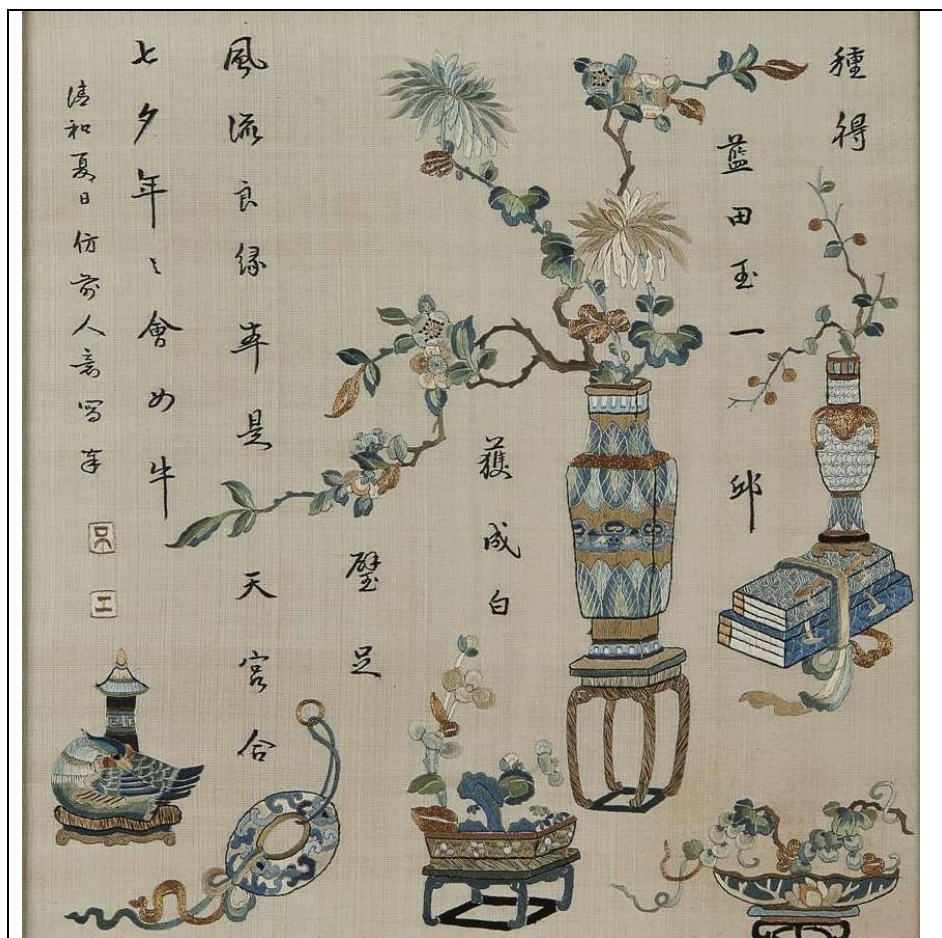 種得
藍田玉一邱
獲成白
璧足
風流良緣是天宮合
七夕年〻會如牛
清和夏日仿前人意寫
工